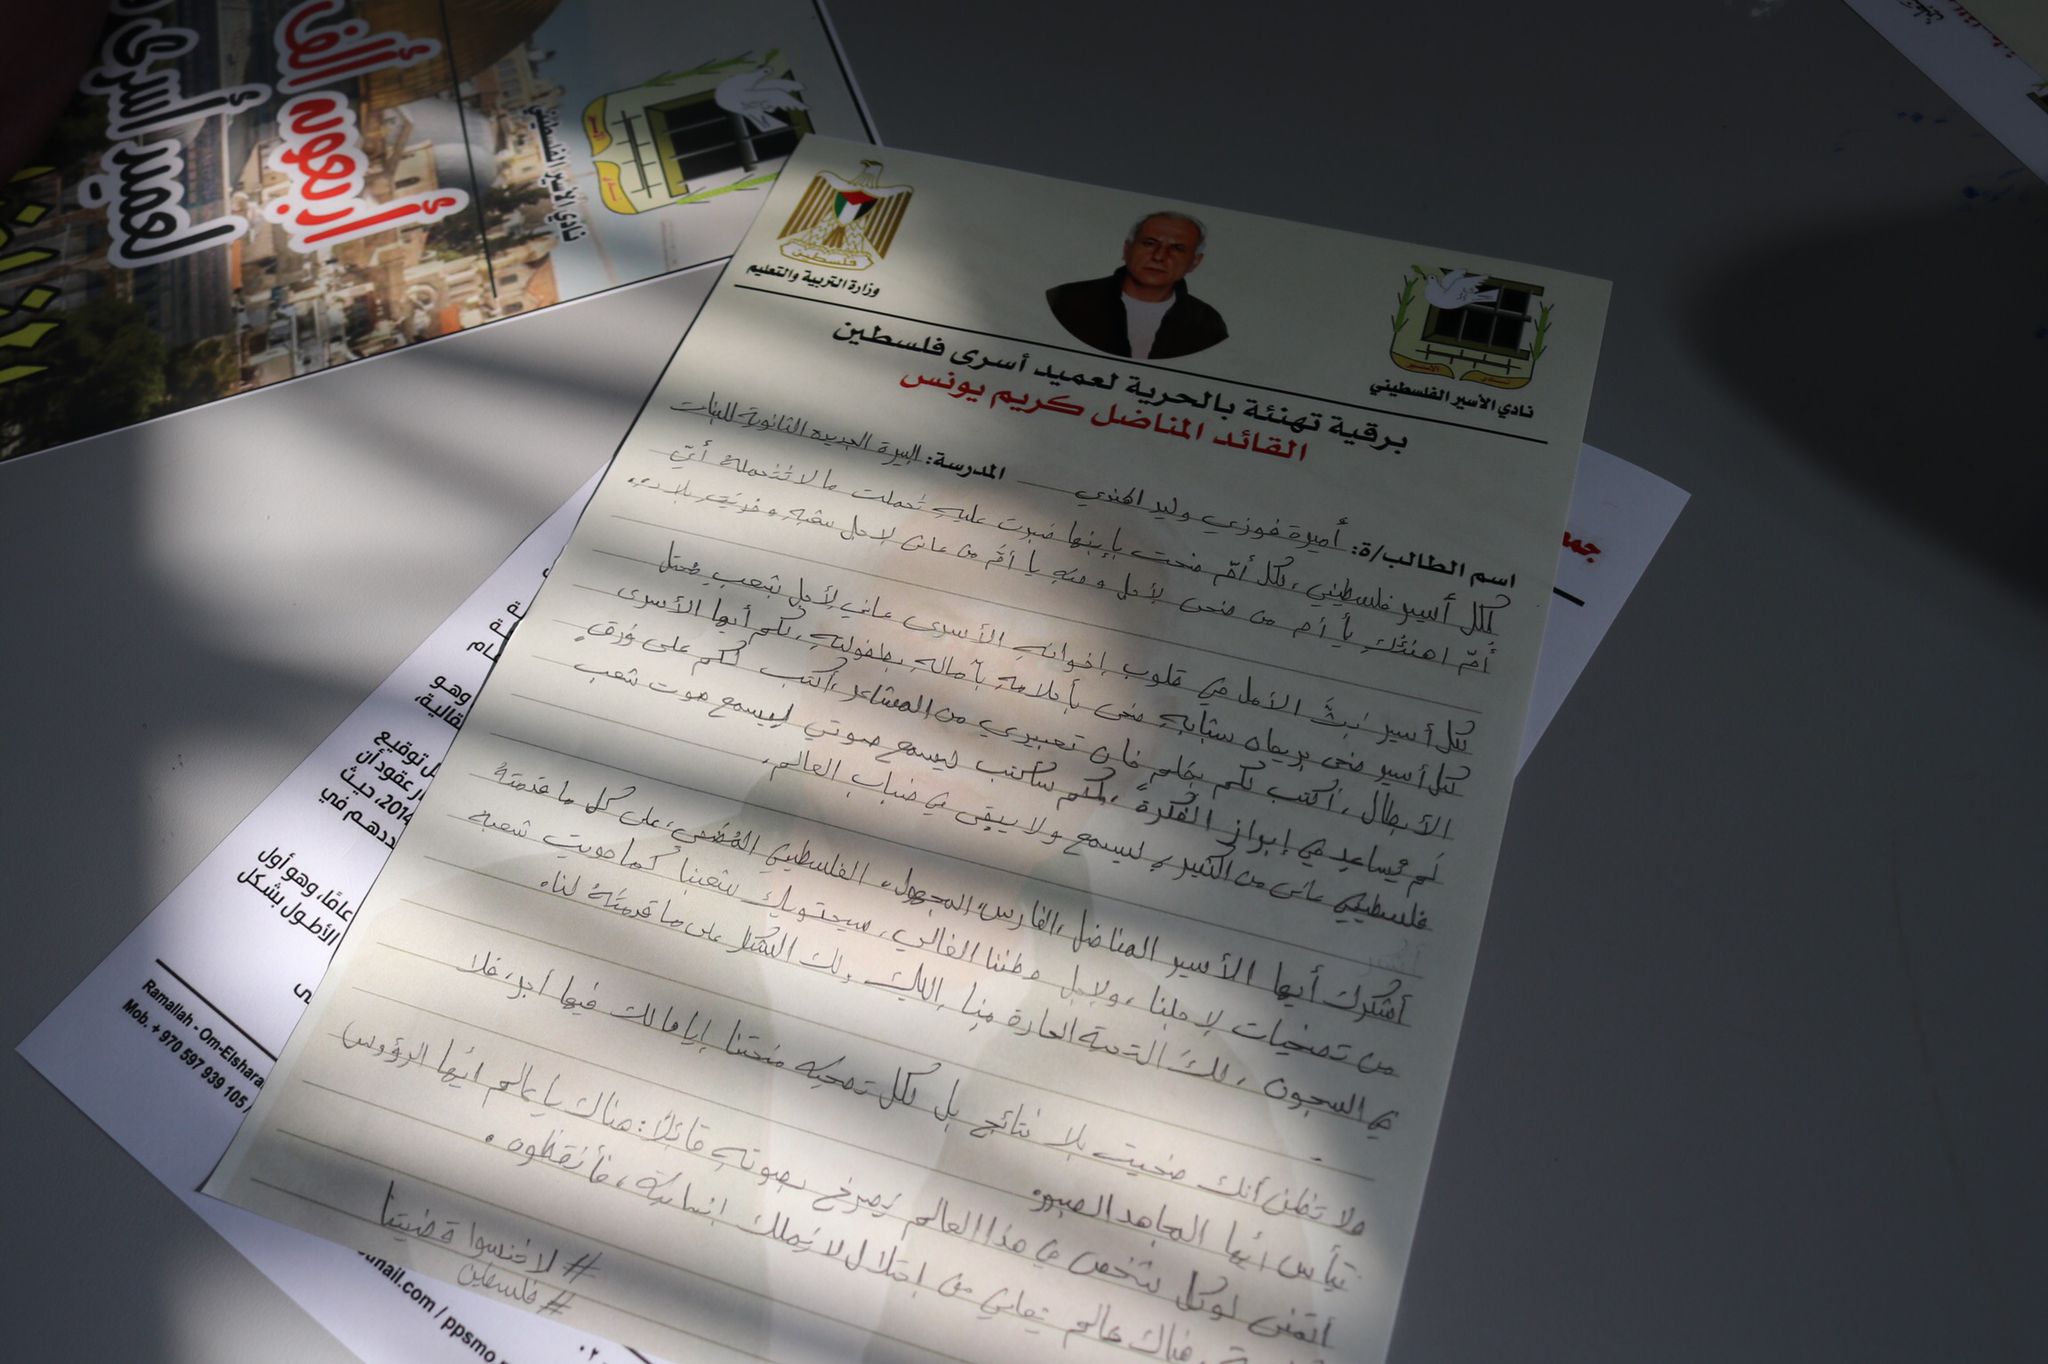 أربعون ألف
لعميد أسرى
نادي الأسير الفلسطيني
فلسطين
وزارة التربية والتعليم
نادي الأسير الفلسطيني
برقية تهنئة بالحرية لعميد أسرى فلسطين
القائد المناضل كريم يونس
اسم الطالب/ة: أميرة فوزي وليد الهندي المدرسة: البيرة الجديدة الثانوية للبنات
لكل أسير فلسطيني، لكل أمّ ضحت بإبنها صبرت عليه تحملت ما لا تتحمله أيّ
أمّ اهنئك يا أم من ضحى لأجل وطنه يا أمّ من عانى لاجل شعبه
لكل أسير نبثّ الأمل في قلوب إخوانه الأسرى عانى لأجل شعب محتل
لكل أسير ضحى بريعان شبابه ضحى بأحلامه بآماله بطفولته، لكم أيها الأسرى
الأبطال، أكتب لكم بقلم خان تعبيري من المشاعر، أكتب لكم على ورق
لم يساعد في إبراز الفكرة، لكم سأكتب ليسمع صوتي ليسمع صوت شعب
فلسطيني عانى من الكثير، ليسمع ولا يبقى في ضباب العالم.
أشكرك أيها الأسير المناضل، الفارس المجهول، الفلسطيني المُضحي، على كل ما قدمته
من تضحيات لاجلنا، ولاجل وطننا الغالي، سيحتويك شعبنا كما حويت شعبه
في السجون، لك التحية الحارة منا إليك ولك الشكر على ما قدمته لنا.
ولا تظن أنك ضحيت بلا نتائج بل لكل تضحية منحتنا إياها لك فيها أجر، فلا
تيأس أيها المجاهد الصبور.
أتمنى لو كل شخص في هذا العالم يصرخ بصوته قائلًا: هناك يا عالم أيها الرؤوس
هناك عالم يعاني من احتلال لا يملك إنسانية، فأنقذوه.
# لا تنسوا قضيتنا
# فلسطين
وهو
توقيع
عقود أن
2014، حيث
عامًا، وهو أول
الأطول بشكل
Ramallah - Om-Elshara
Mob. + 970 597 939 105 /
mail.com / ppsmo